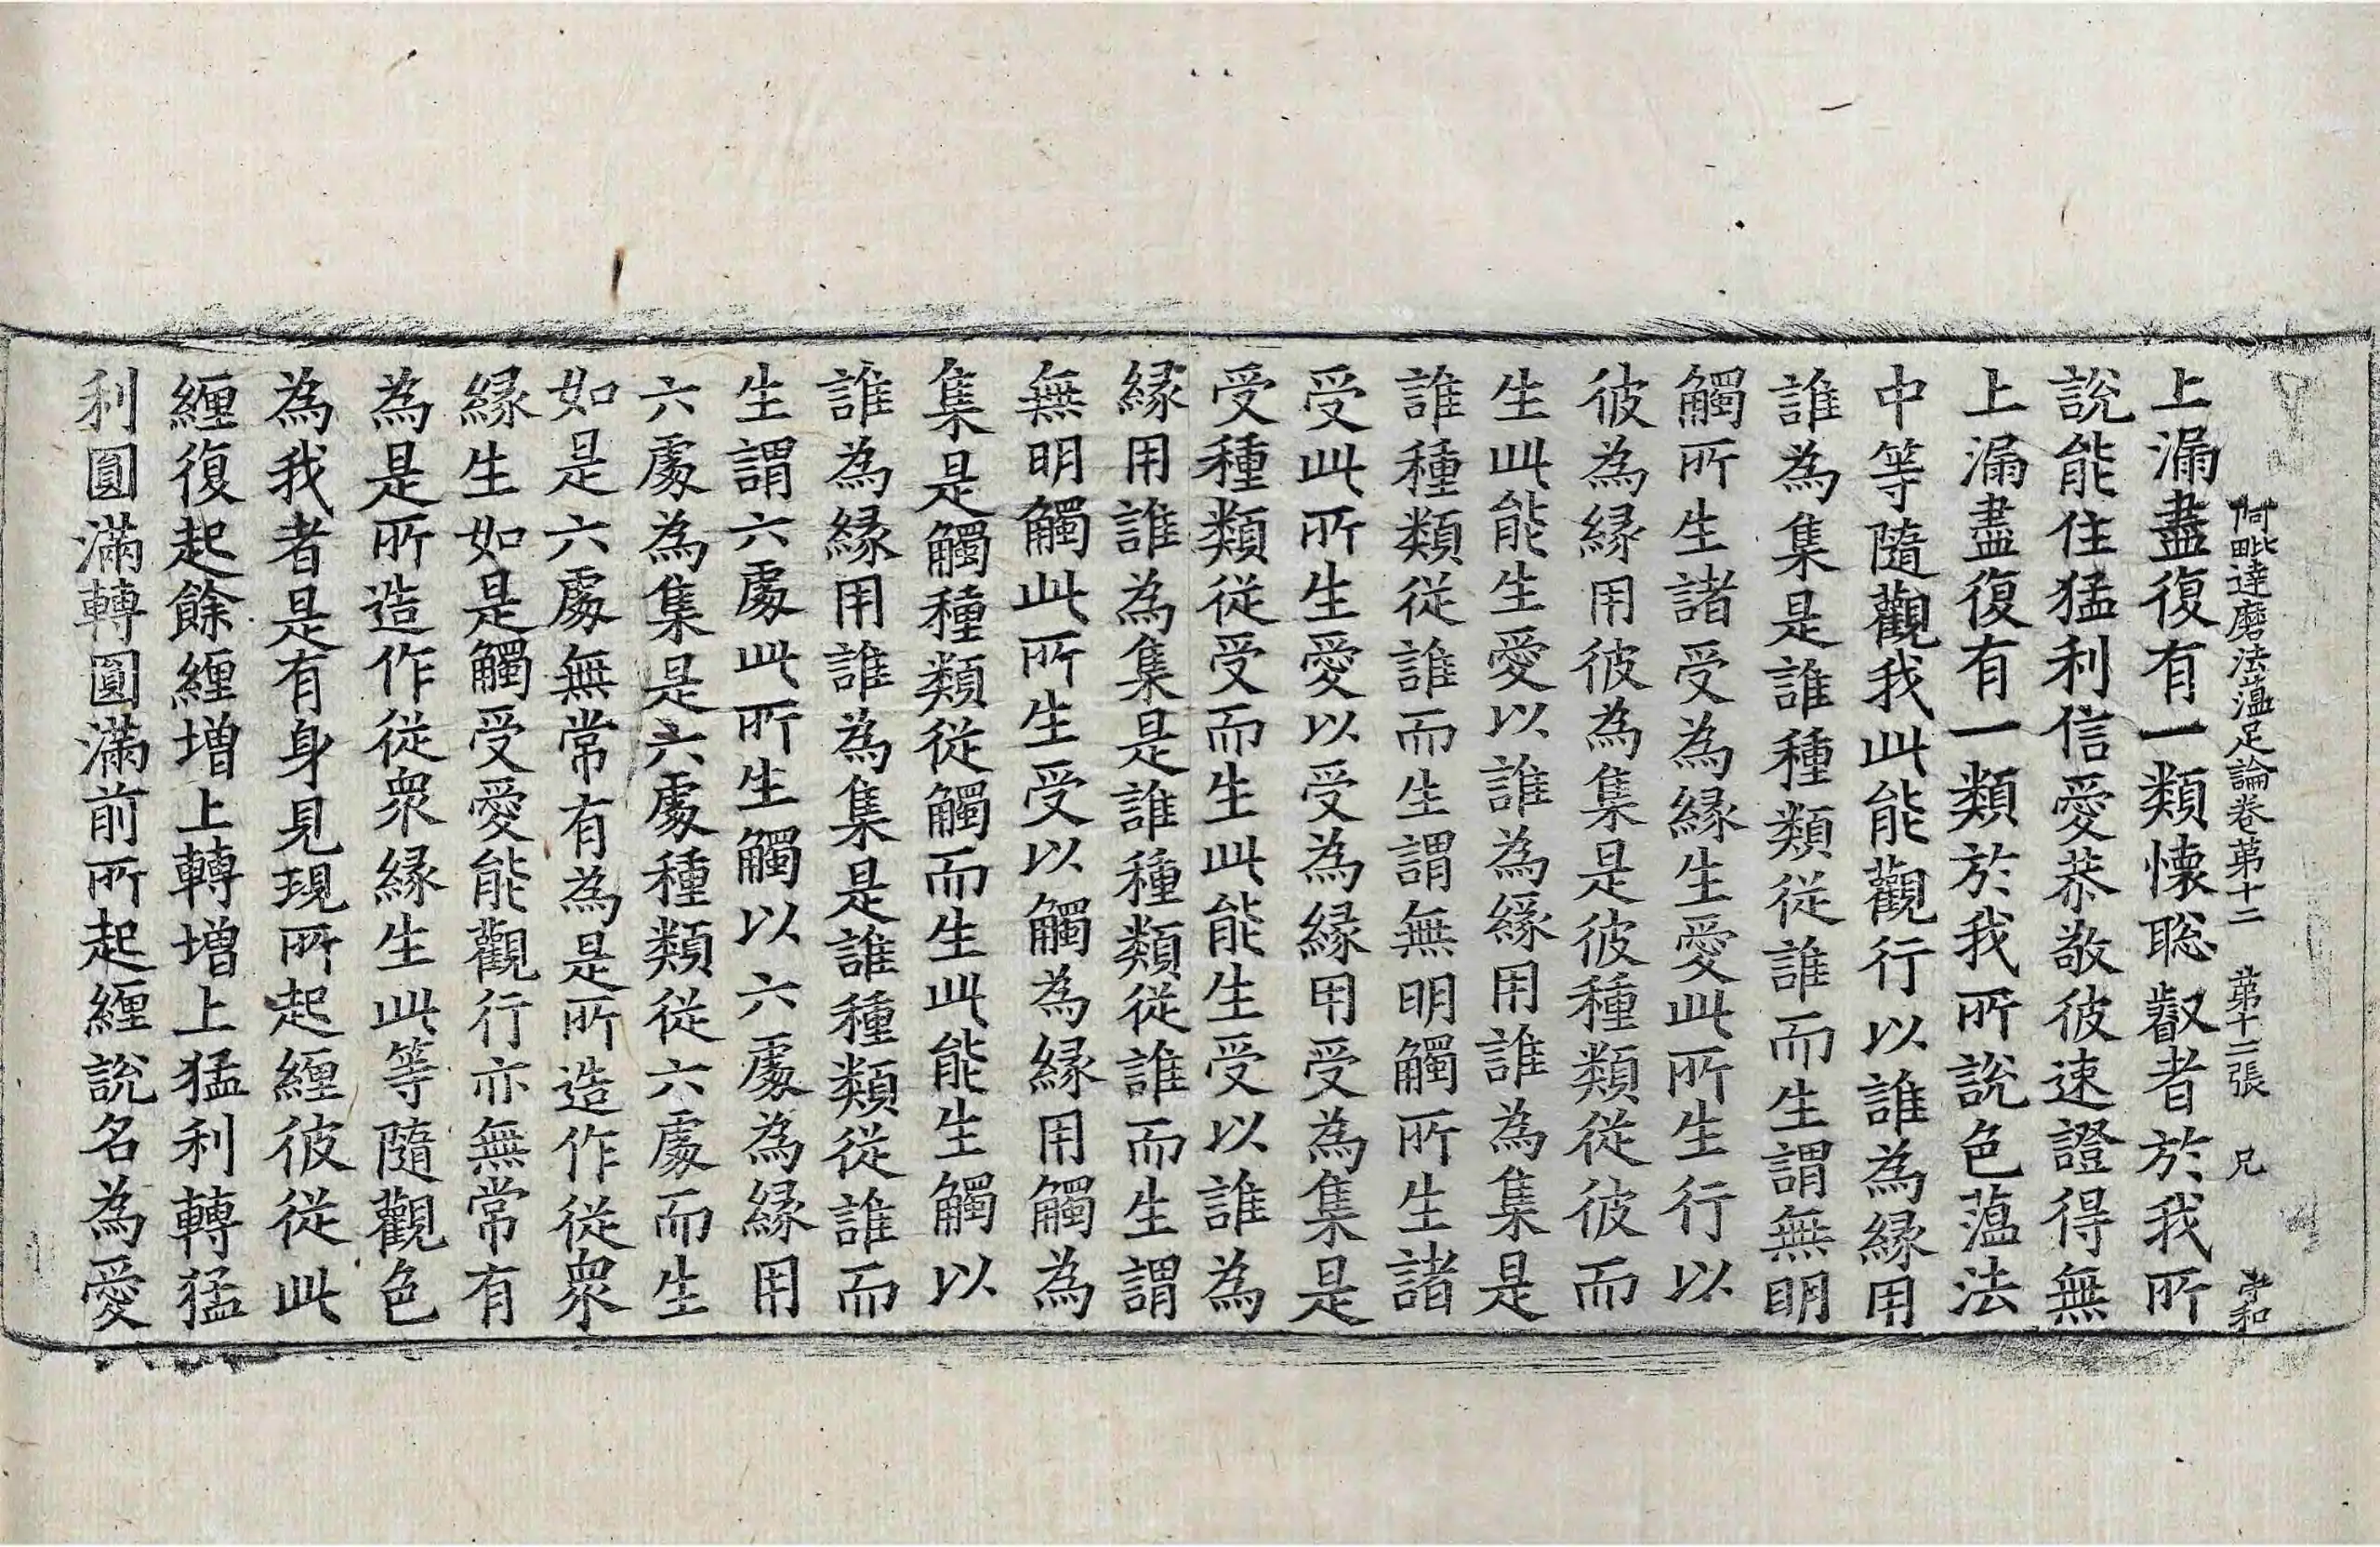 阿毗達磨法薀足論卷第十二　第十二張　兄　崇和
上漏盡復有一類懷聡叡者於我所
說能住猛利信愛恭敬彼速證得無
上漏盡復有一類於我所說色薀法
中等隨觀我此能觀行以誰為縁用
誰為集是誰種類從誰而生謂無明
觸所生諸受為縁生愛此所生行以
彼為縁用彼為集是彼種類從彼而
生此能生愛以誰為縁用誰為集是
誰種類從誰而生謂無明觸所生諸
受此所生愛以受為縁用受為集是
受種類從受而生此能生受以誰為
縁用誰為集是誰種類從誰而生謂
無明觸此所生受以觸為縁用觸為
集是觸種類從觸而生此能生觸以
誰為縁用誰為集是誰種類從誰而
生謂六處此所生觸以六處為縁用
六處為集是六處種類從六處而生
如是六處無常有為是所造作從衆
縁生如是觸受愛能觀行亦無常有
為是所造作從衆縁生此等隨觀色
為我者是有身見現所起纒彼從此
纒復起餘纒増上轉増上猛利轉猛
利圓滿轉圓滿前所起纒說名為愛